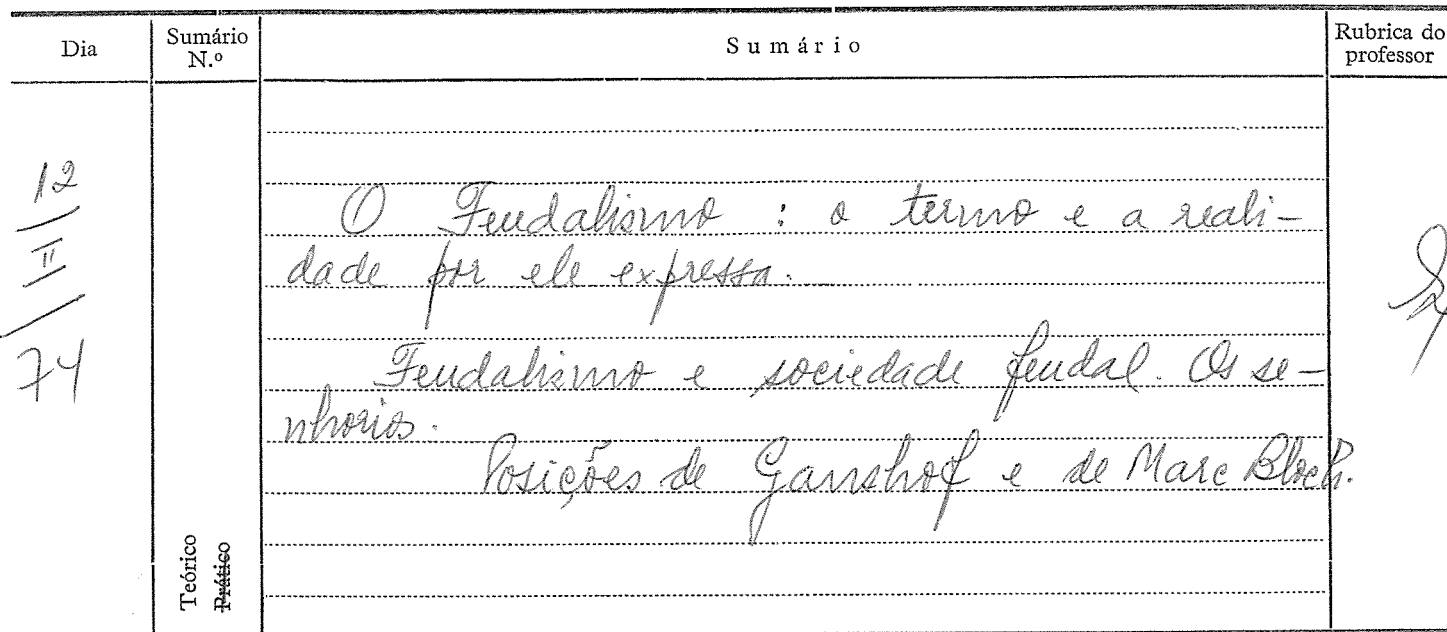 Dia
Sumário
N.º
Sumário
Rubrica do
professor
12
II
74
O Feudalismo : o termo e a reali-
dade por ele expressa.
Feudalismo e sociedade feudal. Os se-
nhorios.
Posições de Ganshof e de Marc Bloch.
Teórico
Prático